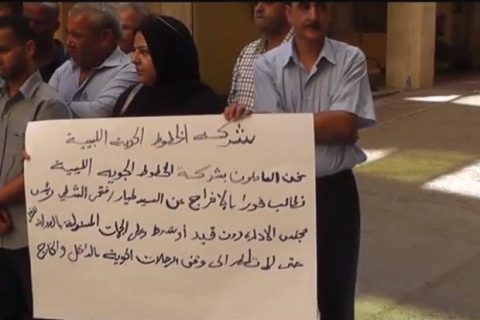 شركة الخطوط الجوية الليبية
نحن العاملون بشركة الخطوط الجوية الليبية
نطالب فورا بالإفراج عن السيد الطيار / فتحي الشطي رئيس
مجلس الإدارة دون قيد أو شرط وعلى الجهات المسئولة بالعدالة
حتى لا نظطر الى وقف الرحلات الجوية بالداخل والخارج